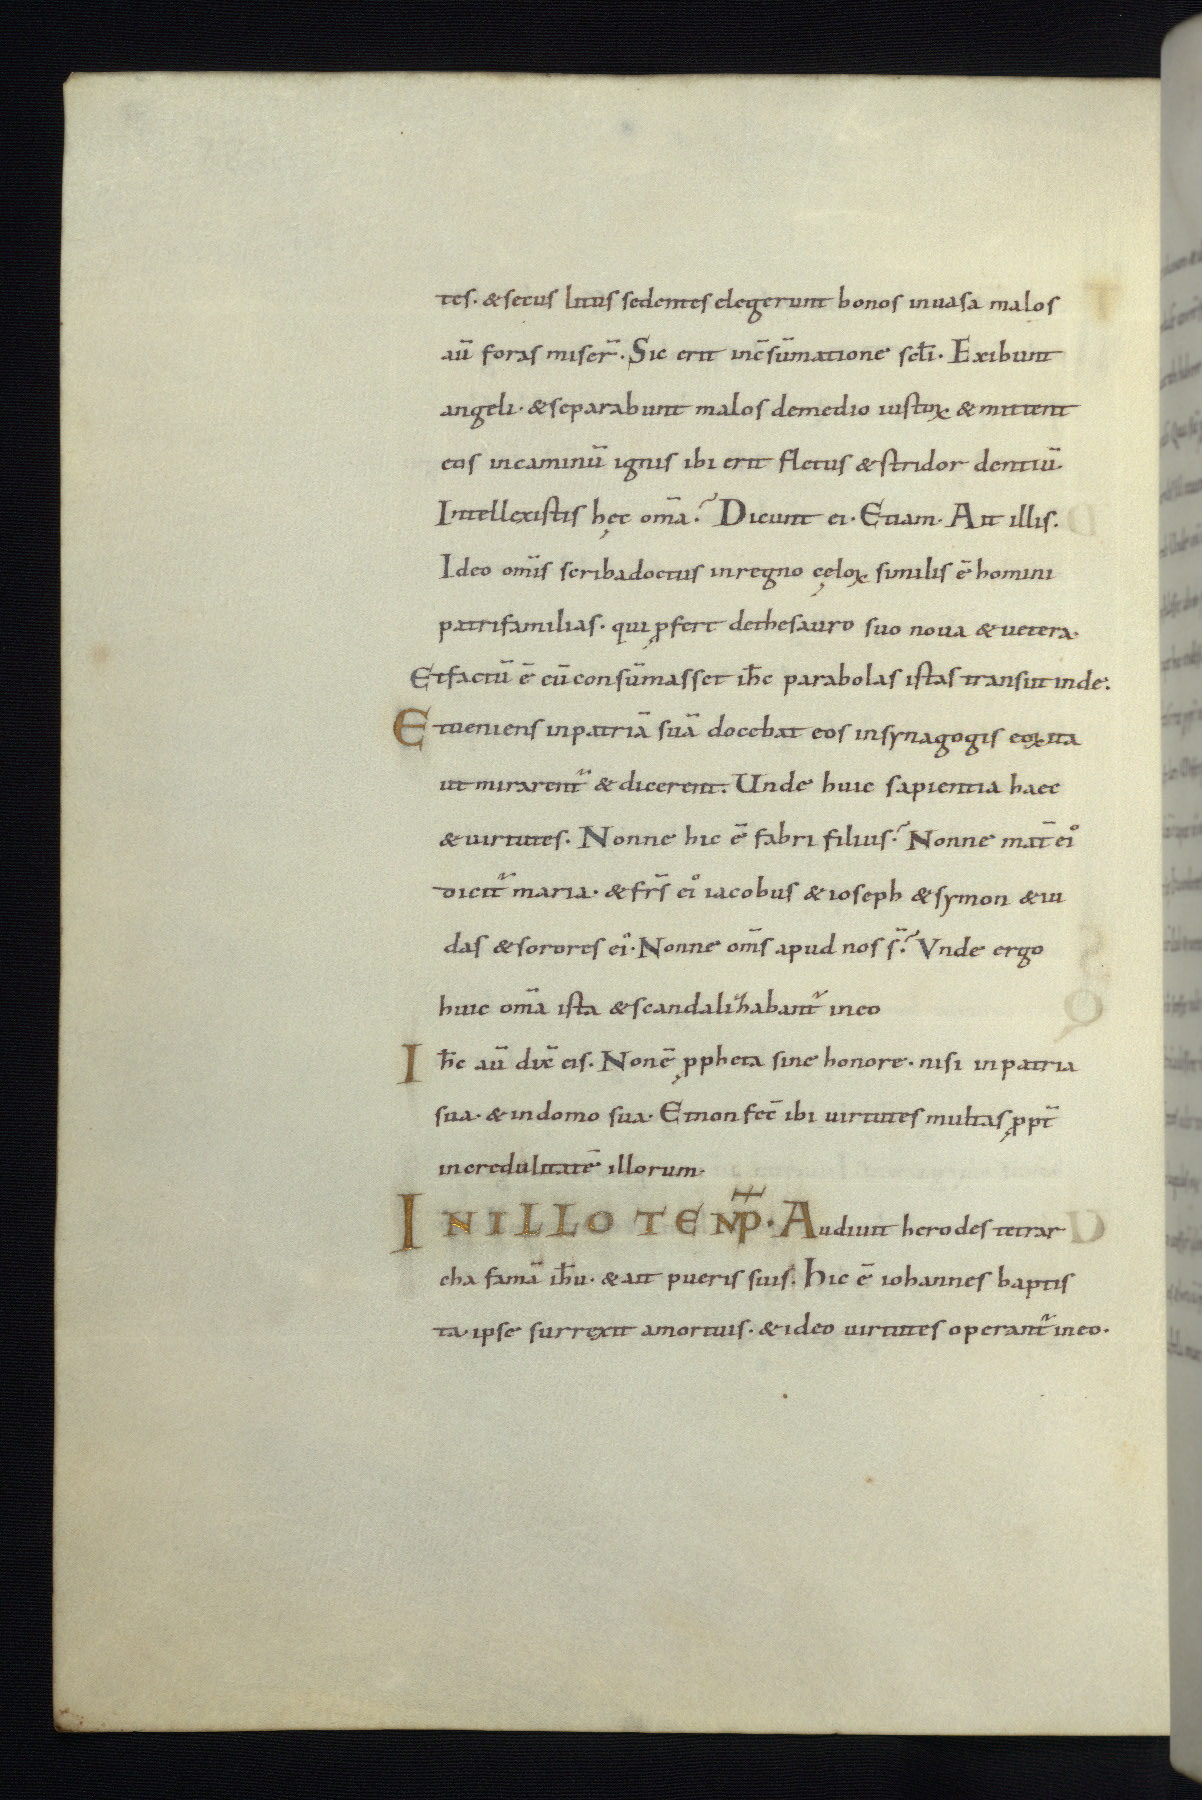 tes. & secus litus sedentes elegerunt bonos in uasa malos
aū foras miser̄. Sic erit in c̄sūmatione sc̄li. Exibunt
angeli. & separabunt malos de medio iustoꝝ & mittent
eos in caminū ignis ibi erit fletus & stridor dentiū.
Intellexistis hęc om̄a? Dicunt ei. Etiam. Ait illis.
Ideo om̄is scriba doctus in regno cęloꝝ similis ē homini
patrifamilias. qui ꝓfert de thesauro suo noua & uetera.
Et factū ē cū consūmasset ih̄c parabolas istas transiit inde.
Et ueniens in patriā suā docebat eos in synagogis eoꝝ ita
ut mirarent᷑ & dicerent. Unde huic sapientia haec
& uirtutes. Nonne hic ē fabri filius? Nonne mat̄ ei᷒
dicit᷑ maria. & fr̄s ei᷒ iacobus & ioseph & symon & iu
das & sorores ei᷒. Nonne om̄s apud nos s̄? Vnde ergo
huic om̄a ista & scandalizabant᷑ in eo
Ih̄c aū dix̄ eis. Non ē ꝓpheta sine honore. nisi in patria
sua. & in domo sua. Et non fec̄ ibi uirtutes multas ꝓpt̄
incredulitatē illorum.
IN ILLO TEMP̄. Audiuit herodes tetrar
cha famā ih̄u. & ait pueris suis. Hic ē iohannes baptis
ta. ipse surrexit a mortuis. & ideo uirtutes operant᷑ in eo.